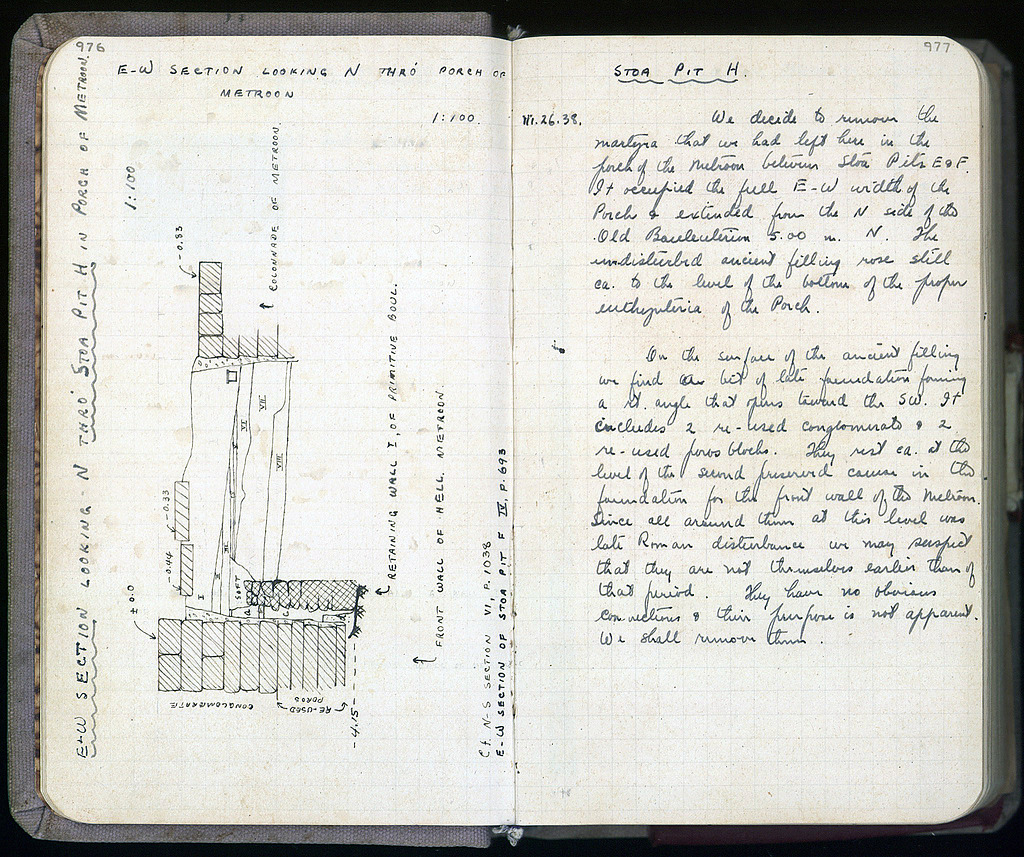 976
E-W SECTION LOOKING N THRO' PORCH OF
METROON
1:100.
E-W SECTION LOOKING N THRO' STOA PIT H IN PORCH OF METROON.
1:100
± 0.0
-0.44
-0.33
-0.83
COLONNADE OF METROON.
I
III
V
VI
VII
VIII
SOFT
A
C
CONGLOMERATE
RE-USED
POROS
-4.15
RETAINING WALL I, OF PRIMITIVE BOUL.
FRONT WALL OF HELL. METROON.
Cf. N-S SECTION VI, P. 1038
E-W SECTION OF STOA PIT F IV, P. 693
977
STOA PIT H.
26.38.
We decide to remove the
martyra that we had left here in the
porch of the Metroon between Stoa Pits E & F.
It occupied the full E-W width of the
Porch & extended from the N side of the
Old Bouleuterion 5.00 m. N. The
undisturbed ancient filling rose still
ca. to the level of the bottom of the proper
euthynteria of the Porch.
On the surface of the ancient filling
we find a bit of late foundation forming
a rt. angle that opens toward the SW. It
includes 2 re-used conglomerate & 2
re-used poros blocks. They rest ca. at the
level of the second preserved course in the
foundation for the front wall of the Metroon.
Since all around them at this level was
late Roman disturbance we may suspect
that they are not themselves earlier than of
that period. They have no obvious
connections & their purpose is not apparent.
We shall remove them.